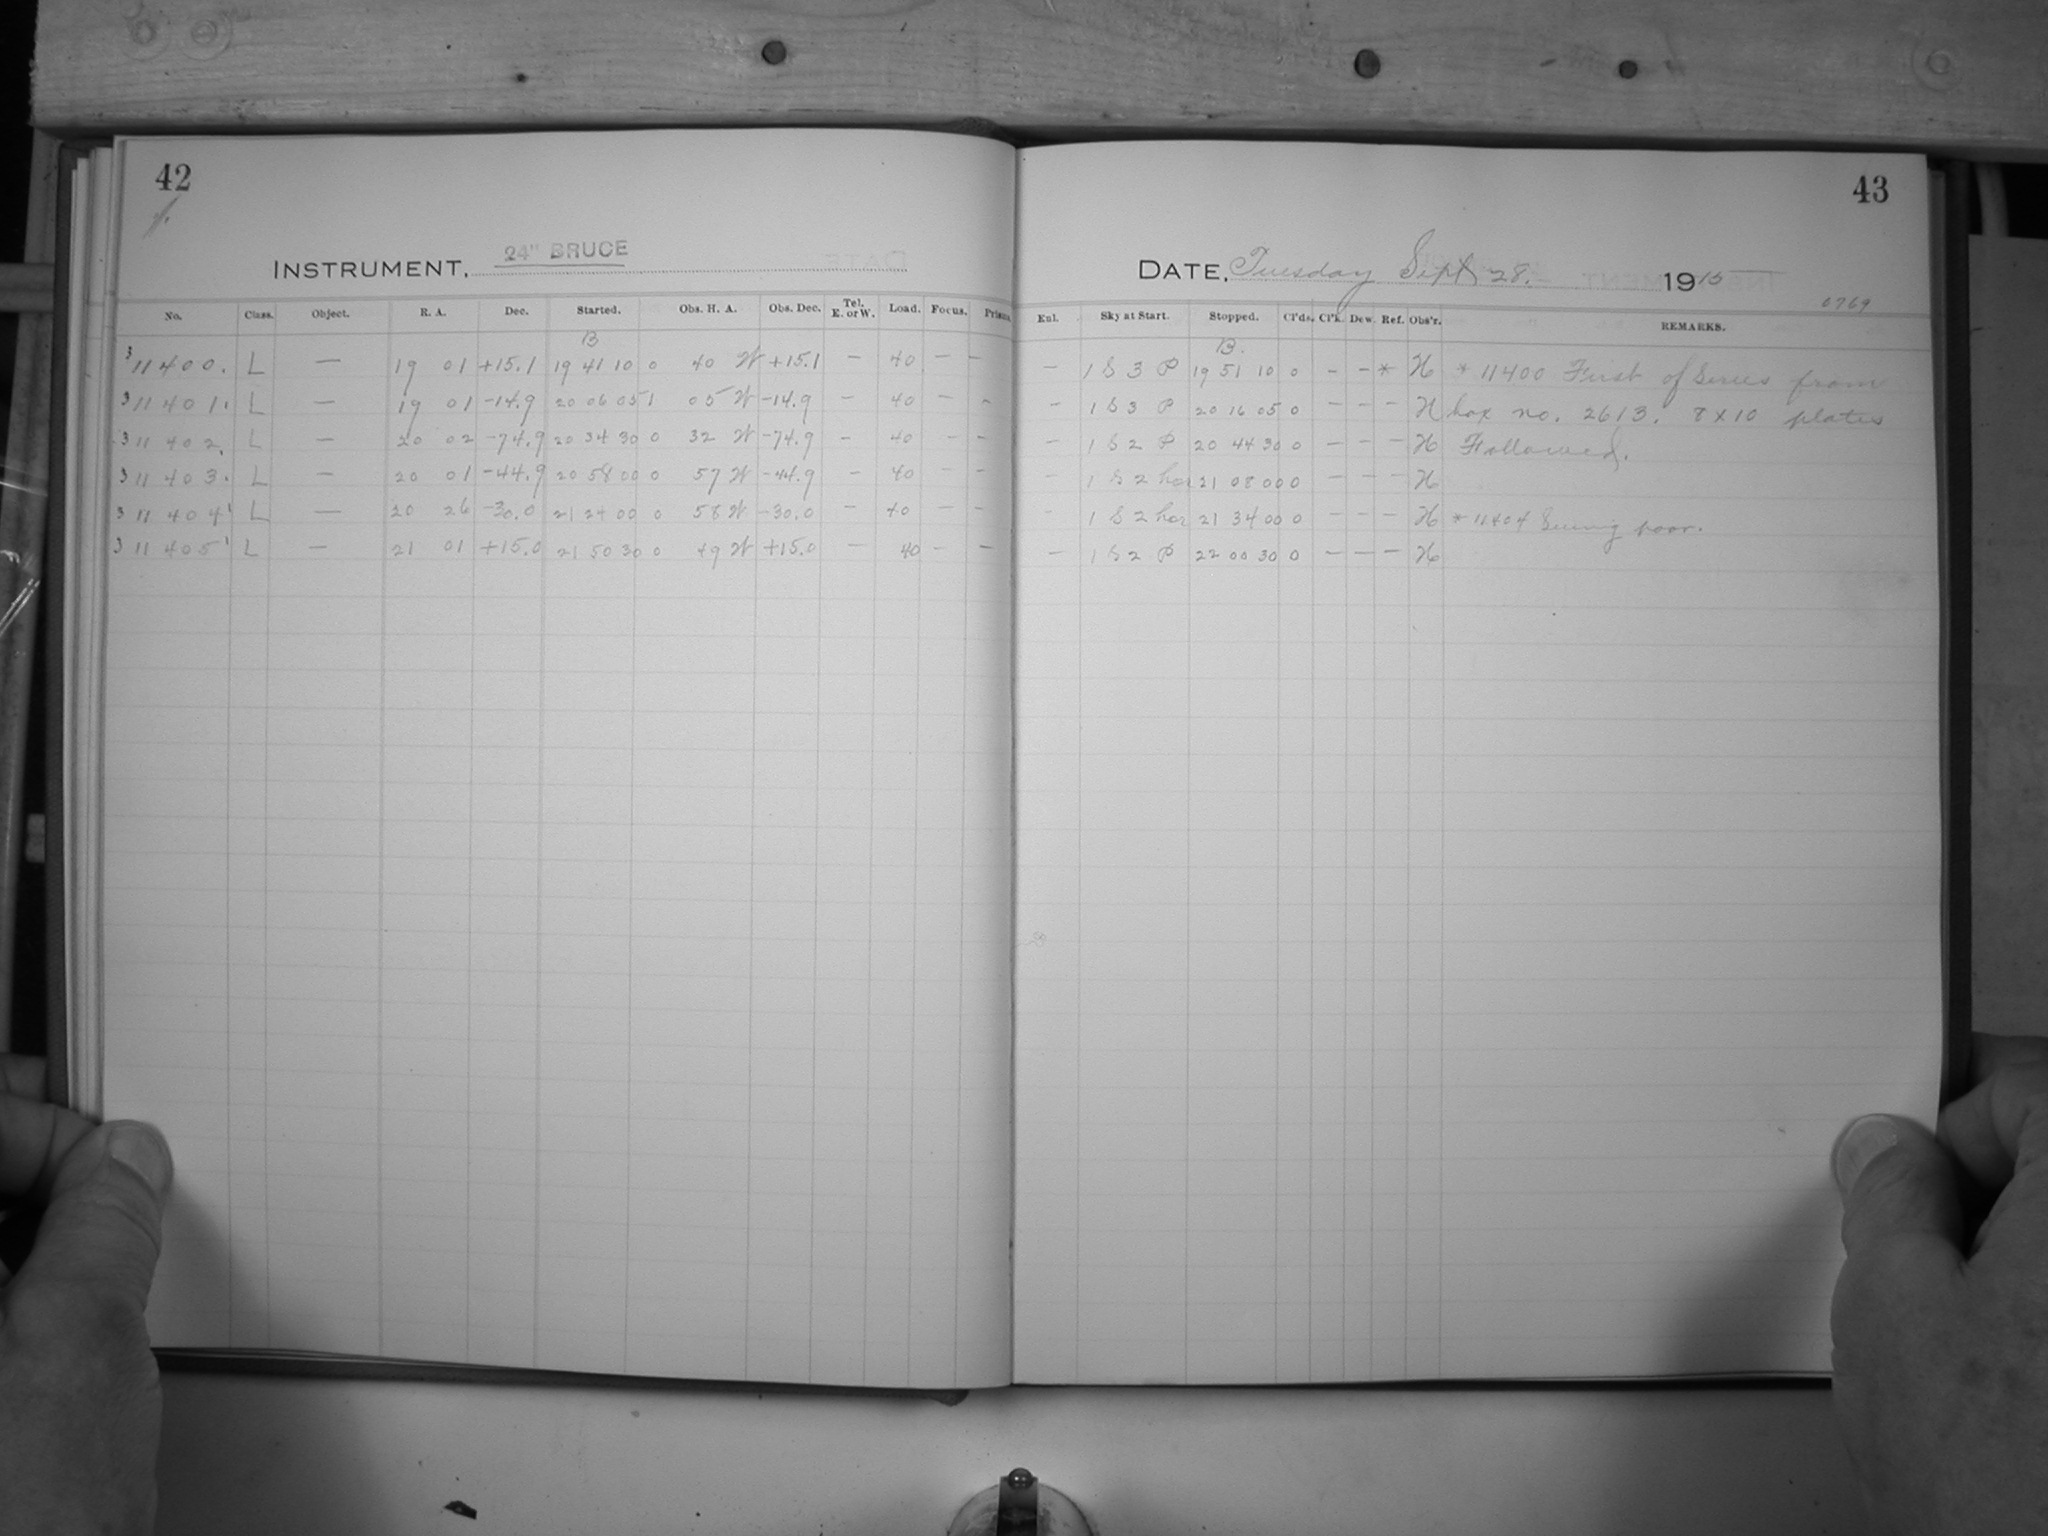 42
INSTRUMENT, 24" BRUCE
No. Class. Object. R. A. Dec. Started. Obs. H. A. Obs. Dec. Tel. E. or W. Load. Focus. Prisms.
B
3 11400. L — 19 01 +15.1 19 41 10 0 40 W +15.1 — 40 — —
3 11401. L — 19 01 -14.9 20 06 05 1 05 W -14.9 — 40 — -
3 11402. L — 20 02 -74.9 20 34 30 0 32 W -74.9 — 40 — —
3 11403. L — 20 01 -44.9 20 58 00 0 57 W -44.9 — 40 — —
3 11404 L — 20 26 -30.0 21 24 00 0 58 W -30.0 — 40 — —
3 11405 L — 21 01 +15.0 21 50 30 0 49 W +15.0 — 40 — —
43
DATE, Tuesday Sept 28. 1915
0769
Enl. Sky at Start. Stopped. Cl'ds. Cl'k. Dew. Ref. Obs'r. REMARKS.
B.
— 1 S 3 P 19 51 10 0 — — * H * 11400 First of Series from
— 1 S 3 P 20 16 05 0 — — — H box no. 2613. 8 x 10 plates
— 1 S 2 P 20 44 30 0 — — — H Followed.
— 1 S 2 hor 21 08 00 0 — — — H
- 1 S 2 hor 21 34 00 0 — — — H * 11404 Seeing poor.
— 1 S 2 P 22 00 30 0 — — — H